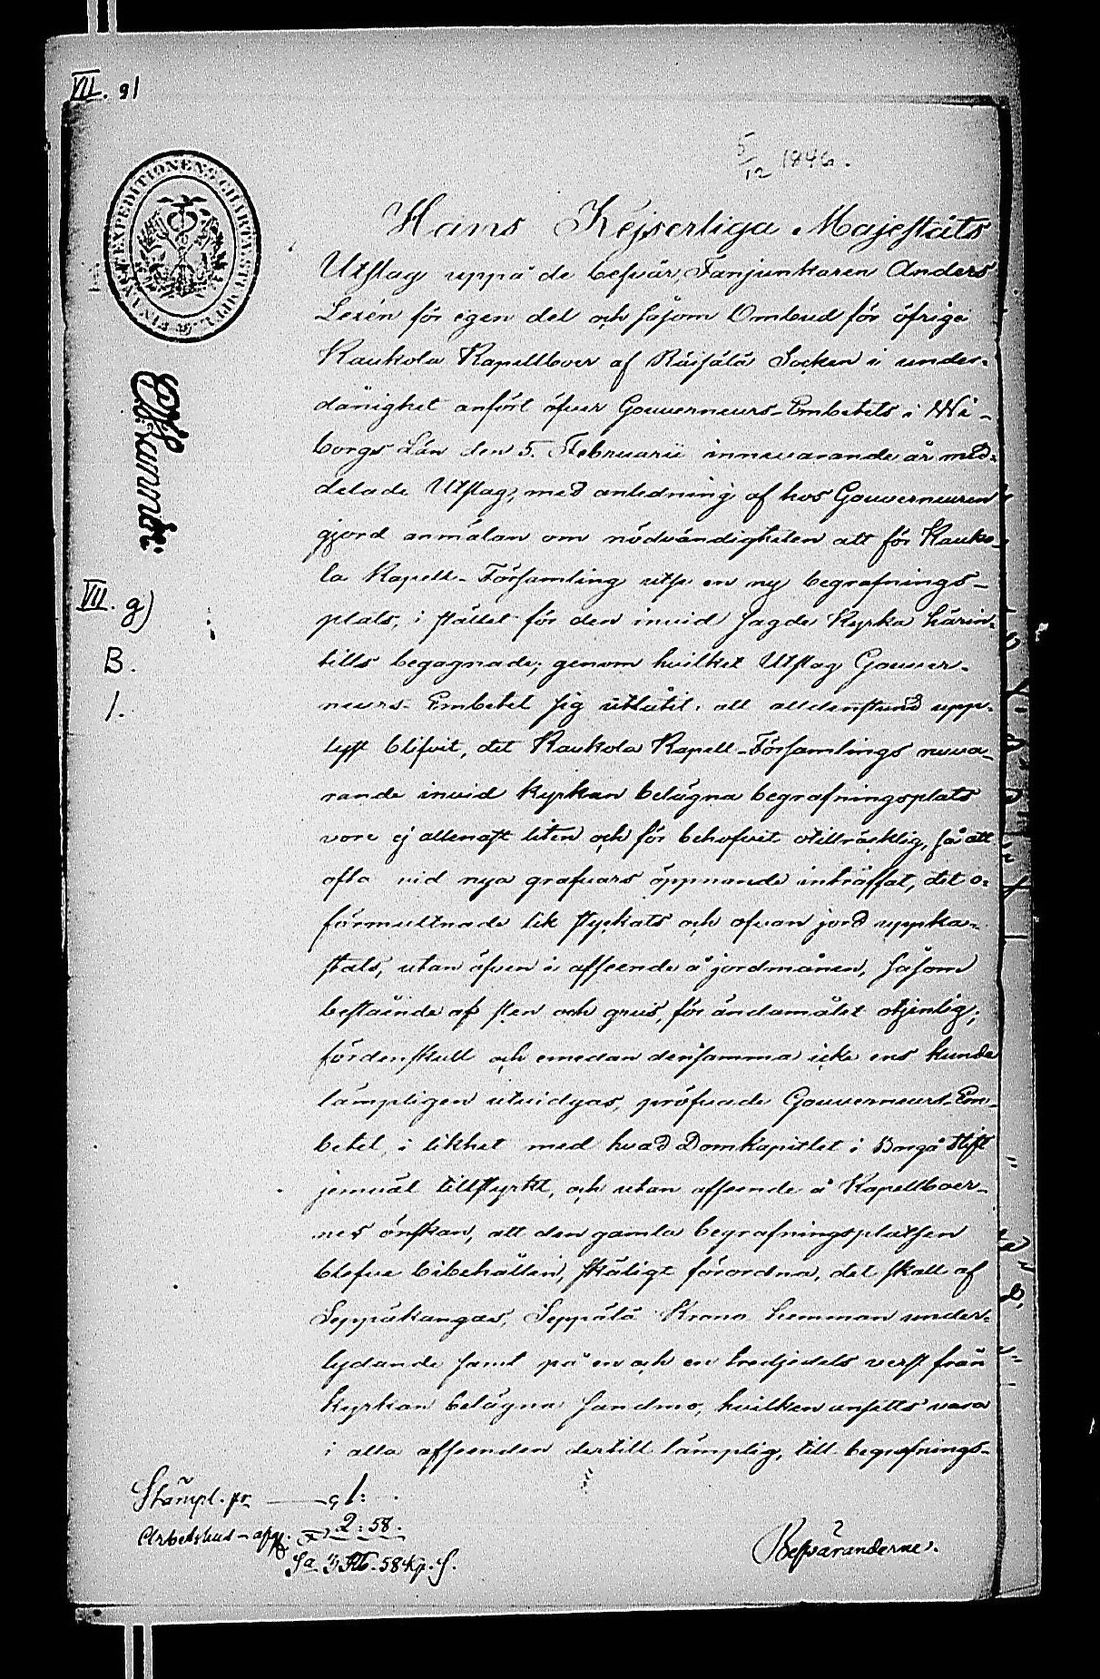 VII. g)
5/12 1846.
FINANCE EXPEDITIONENS CHARTÆ
Hans Kejserliga Majestäts
Utslag uppå de besvär, Fanjunkaren Anders
Lexén för egen del och såsom Ombud för öfriga
Kaukola Kapellboer af Räisälä Socken i under-
dånighet anfört öfver Gouverneurs-Embetets i Wi-
borgs Län den 5. Februarii innevarande år med-
delade Utslag, med anledning af hos Gouverneuren
gjord anmälan om nödvändigheten att för Kauko-
la Kapell-Församling utse en ny begrafnings-
plats, i stället för den invid sagde Kyrka härin-
tills begagnade; genom hvilket Utslag Gouver-
neurs-Embetet sig utlåtit: att alldenstund upp-
lyst blifvit, det Kaukola Kapell-Församlings nuva-
rande invid kyrkan belägna begrafningsplats
vore ej allenast liten och för behofvet otillräcklig, så att
ofta vid nya grafvars öppnande inträffat, det o-
förmultnade lik styckats och ofvan jord uppka-
stats, utan äfven i afseende å jordmånen, såsom
bestående af sten och grus, för ändamålet otjenlig;
fördenskull och emedan densamma icke ens kunde
lämpligen utvidgas, pröfvade Gouverneurs-Em-
betet, i likhet med hvad Domkapitlet i Borgå Stift
jemväl tillstyrkt, och utan afseende å Kapellboer-
nes önskan, att den gamla begrafningsplatsen
blefve bibehållen, skäligt förordna, det skall af
Seppäkangas, Seppälä Krono hemman under-
lydande samt på en och en tredjedels verst från
kyrkan belägna sandmo, hvilken ansetts vara
i alla afseenden dertill lämplig, till begrafnings-
VII. g)
B.
1.
Stämpl. pr ——— 1:
Arbetshus-afg. 2: 58.
Sa 3 Rb. 58 Kp. S.
Besväranderne.